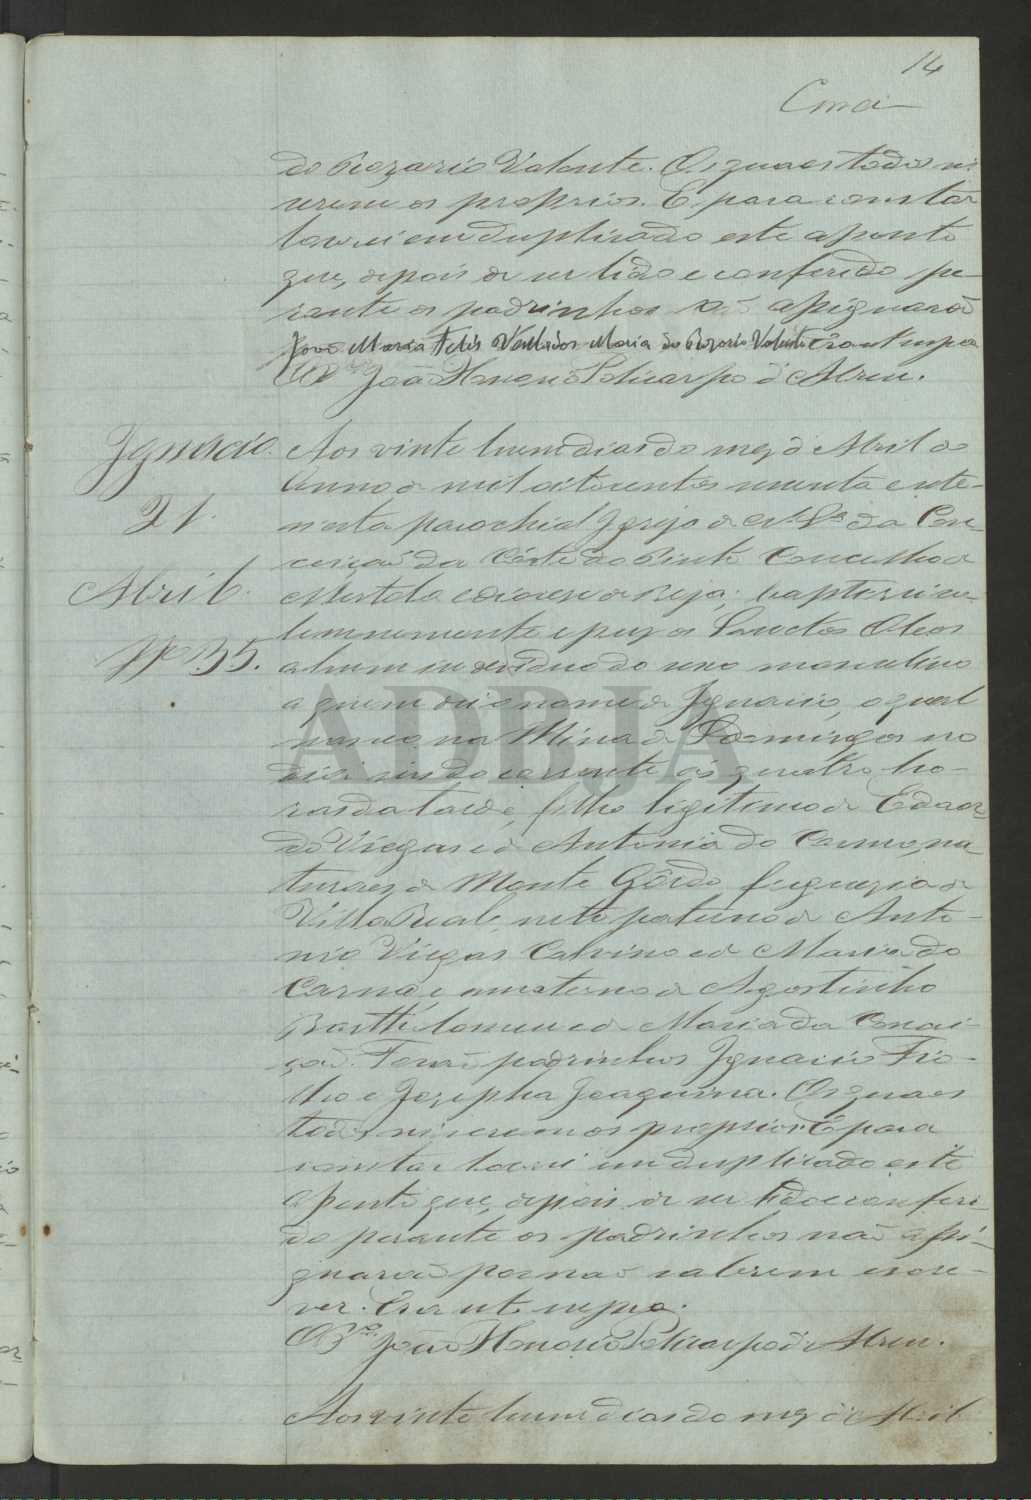 14
do Rozario Valente. Os quaes todos vi
verem os proprios. E para constar
lavrei em duplicado este aSsento
que, depois de ser lido e conferido pe-
rante os padrinhos aSsignarão
João Maria Felis Maria do Rozario Valente Era ut supra
João Honorio Policarpo d'Abreu.
Ignacio. Aos vinte hum dias do mez d'Abril do
21 Anno de mil oitocentos secenta e sete
nesta parochial Igreja de N. Sra. da Con-
ceição da Côrte do Pinto Concelho de
Abril. Mertola e diocese de Beja; baptisei so-
lemnemente e puz os Sanctos Oleos
No 35. a hum individuo do sexo masculino
a quem dei o nome de Ignacio, o qual
nasceo na Mina de S. Domingos no
dia seis do corrente ás quatro ho-
ras da tarde, filho legitimo de Eduar-
do Viegas e de Antonia do Carmo, na-
turaes de Monte Gôrdo freguezia de
Villa Real, neto paterno de Anto-
nio Viegas Calvino e de Maria do
Carmo, e materno de Agostinho
Bartholomeu e de Maria da Concei-
ção. Forão padrinhos Ignacio
e Jozepha Joaquina. Os quaes
todos vi serem os proprios. E para
constar lavrei em duplicado este
aSsento que, depois de ser lido e conferi-
do perante os padrinhos não aSsi-
gnarão por não saberem escre-
ver. Era ut supra.
João Honorio Policarpo d'Abreu.
Aos vinte hum dias do mez d'Abril
ADBJA